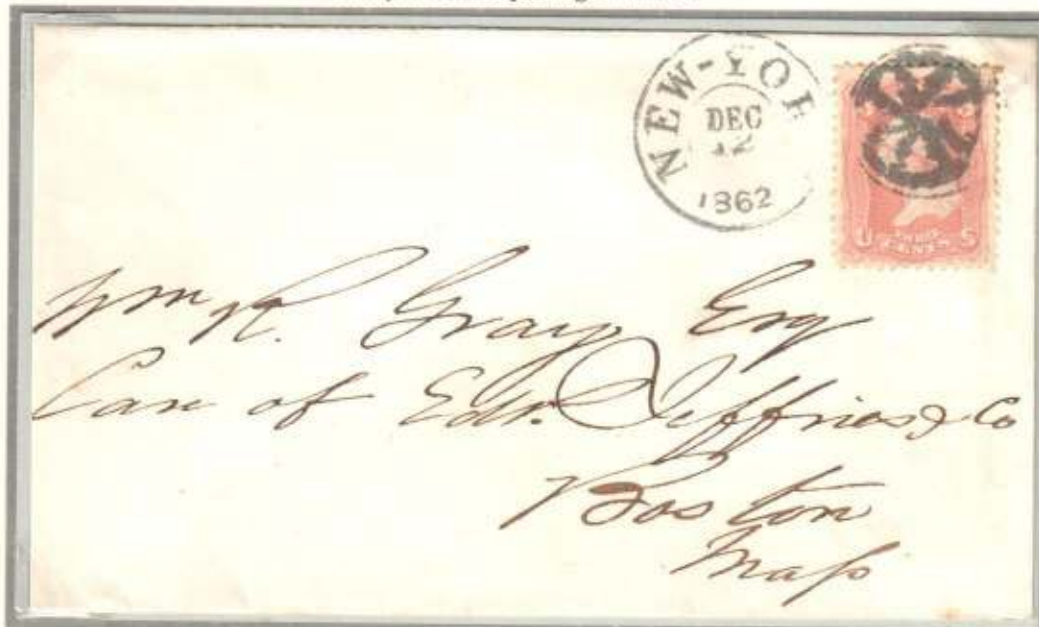 NEW-YOR
DEC
12
1862
U THREE CENTS S
Wm R. Gray Esq
Care of Edr. Jeffries & Co
Boston
Mass